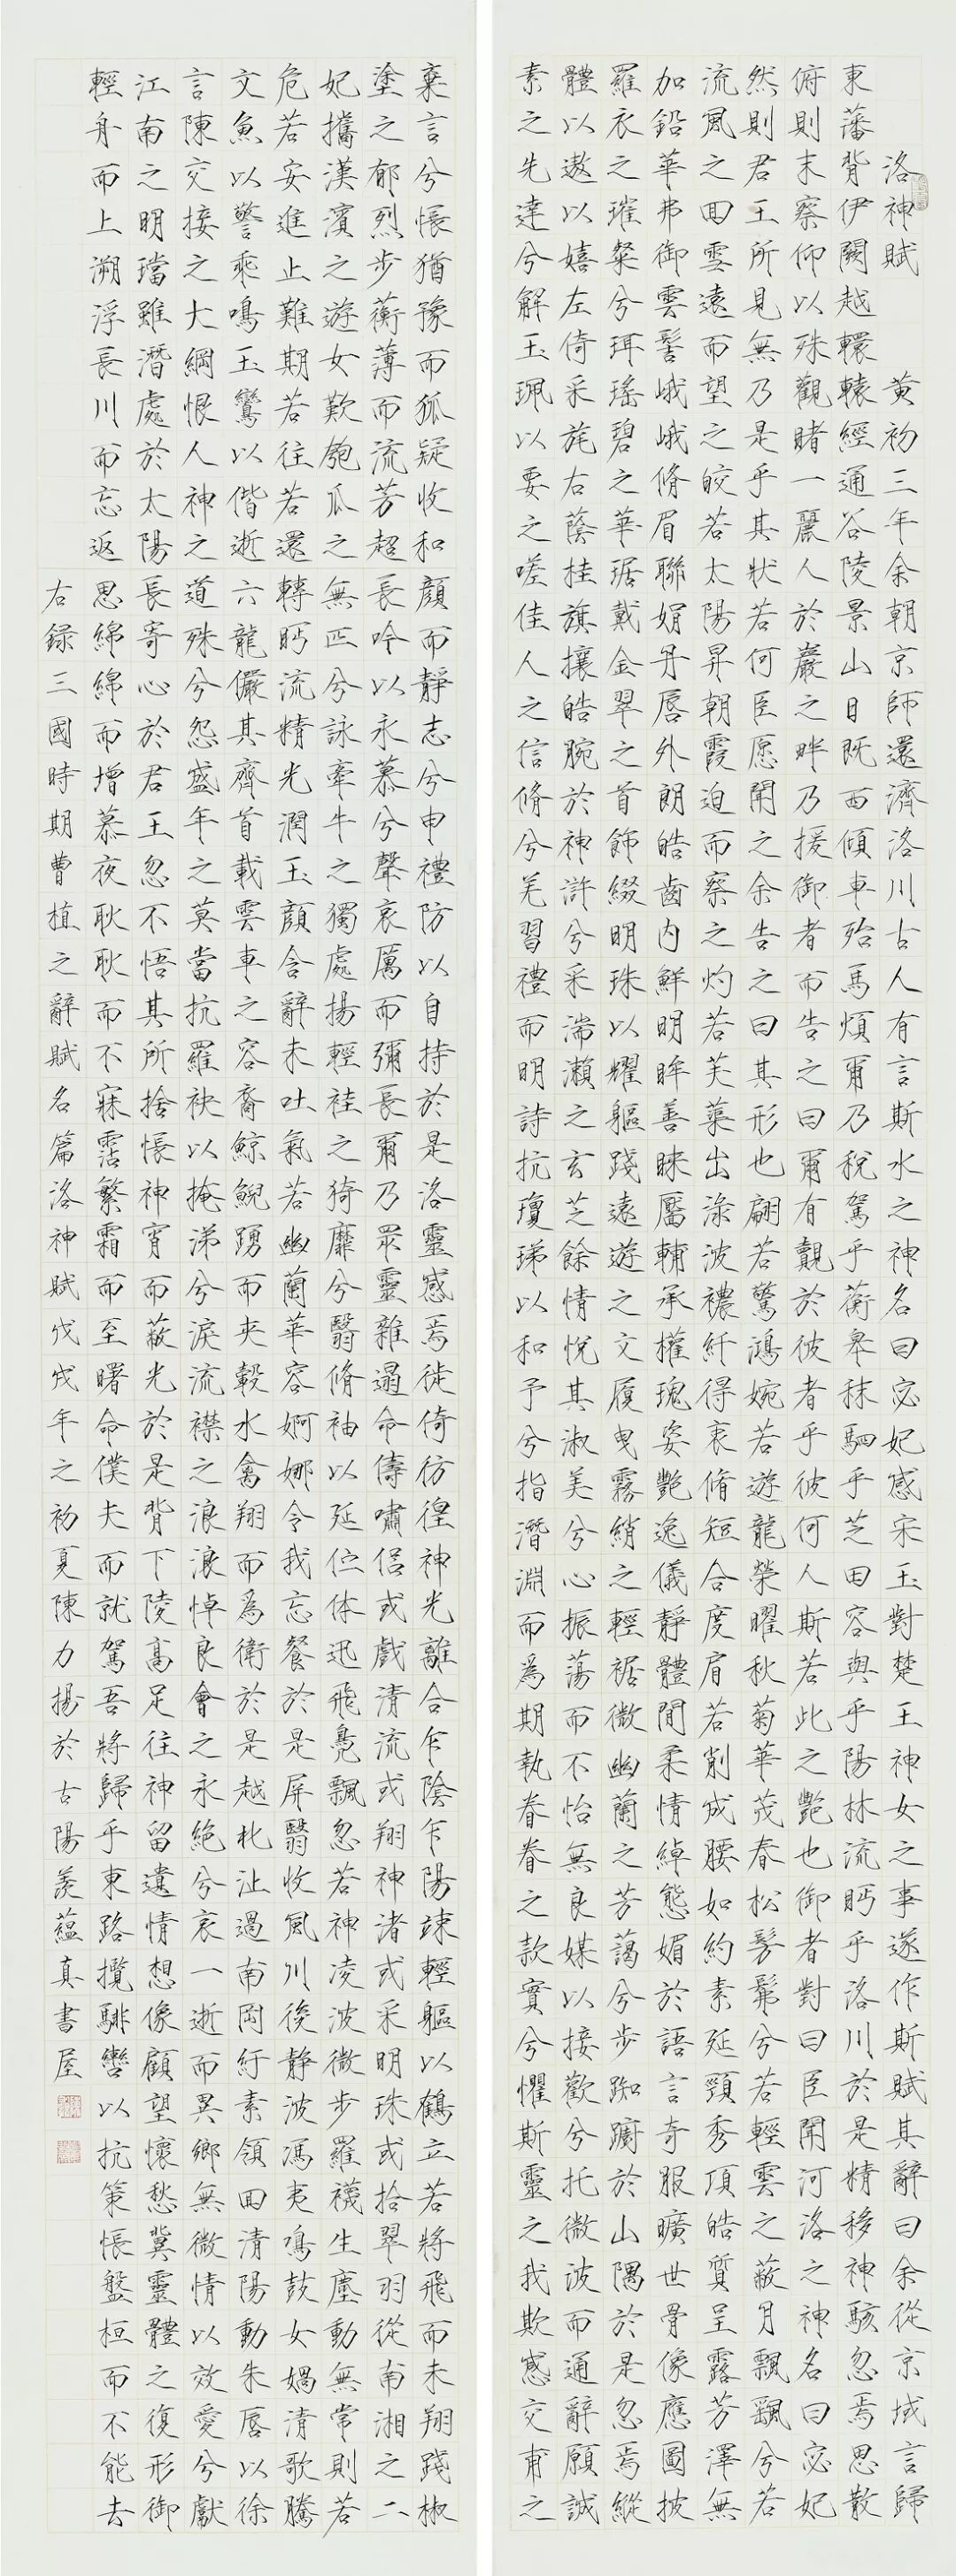 洛神賦 黃初三年余朝京師還濟洛川古人有言斯水之神名曰宓妃感宋玉對楚王神女之事遂作斯賦其辭曰余從京域言歸
東藩背伊闕越轘轅經通谷陵景山日既西傾車殆馬煩爾乃稅駕乎蘅皋秣駟乎芝田容與乎陽林流眄乎洛川於是精移神駭忽焉思散
俯則未察仰以殊觀睹一麗人於巖之畔乃援御者而告之曰爾有覿於彼者乎彼何人斯若此之艷也御者對曰臣聞河洛之神名曰宓妃
然則君王所見無乃是乎其狀若何臣愿聞之余告之曰其形也翩若驚鴻婉若遊龍榮曜秋菊華茂春松髣髴兮若輕雲之蔽月飄颻兮若
流風之回雪遠而望之皎若太陽昇朝霞迫而察之灼若芙蕖出淥波襛纖得衷脩短合度肩若削成腰如約素延頸秀項皓質呈露芳澤無
加鉛華弗御雲髻峨峨脩眉聯娟丹唇外朗皓齒內鮮明眸善睞靨輔承權瑰姿艷逸儀靜體閒柔情綽態媚於語言奇服曠世骨像應圖披
羅衣之璀粲兮珥瑤碧之華琚戴金翠之首飾綴明珠以耀軀踐遠遊之文履曳霧綃之輕裾微幽蘭之芳藹兮步踟躕於山隅於是忽焉縱
體以遨以嬉左倚采旄右蔭桂旗攘皓腕於神滸兮采湍瀨之玄芝餘情悅其淑美兮心振蕩而不怡無良媒以接歡兮托微波而通辭願誠
素之先達兮解玉珮以要之嗟佳人之信脩兮羌習禮而明詩抗瓊珶以和予兮指潛淵而為期執眷眷之款實兮懼斯靈之我欺感交甫之
棄言兮悵猶豫而狐疑收和顏而靜志兮申禮防以自持於是洛靈感焉徙倚彷徨神光離合乍陰乍陽竦輕軀以鶴立若將飛而未翔踐椒
塗之郁烈步蘅薄而流芳超長吟以永慕兮聲哀厲而彌長爾乃眾靈雜遝命儔嘯侶或戲清流或翔神渚或采明珠或拾翠羽從南湘之二
妃攜漢濱之遊女歎匏瓜之無匹兮詠牽牛之獨處揚輕袿之猗靡兮翳脩袖以延佇体迅飛鳧飄忽若神凌波微步羅襪生塵動無常則若
危若安進止難期若往若還轉眄流精光潤玉顏含辭未吐氣若幽蘭華容婀娜令我忘餐於是屏翳收風川後靜波馮夷鳴鼓女媧清歌騰
文魚以警乘鳴玉鸞以偕逝六龍儼其齊首載雲車之容裔鯨鯢踴而夾轂水禽翔而為衛於是越北沚過南岡紆素領回清陽動朱唇以徐
言陳交接之大綱恨人神之道殊兮怨盛年之莫當抗羅袂以掩涕兮淚流襟之浪浪悼良會之永絕兮哀一逝而異鄉無微情以效愛兮獻
江南之明璫雖潛處於太陽長寄心於君王忽不悟其所捨悵神宵而蔽光於是背下陵高足往神留遺情想像顧望懷愁冀靈體之復形御
輕舟而上溯浮長川而忘返思綿綿而增慕夜耿耿而不寐霑繁霜而至曙命僕夫而就駕吾將歸乎東路攬騑轡以抗策悵盤桓而不能去
右錄三國時期曹植之辭賦名篇洛神賦戊戌年之初夏陳力揚於古陽羨蘊真書屋